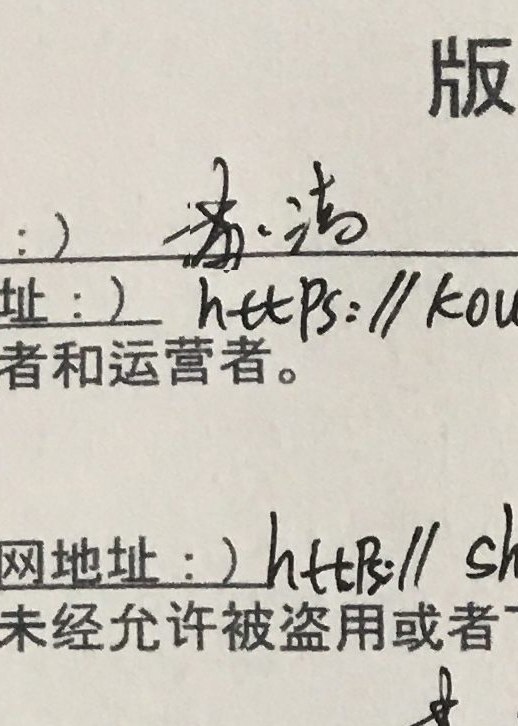 版
:）
址:） https://kou
者和运营者。
网地址:）https:// sh
未经允许被盗用或者